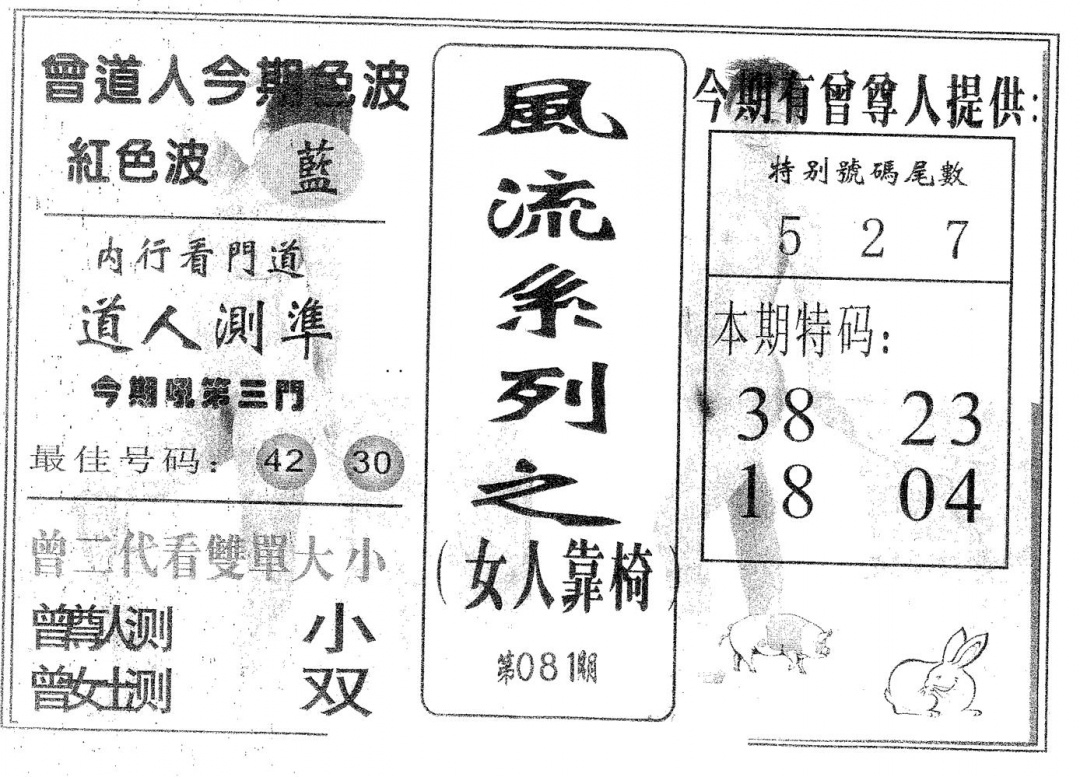 曾道人今期色波
紅色波 藍
内行看門道
道人測準
今期吼第三門
最佳号码： 42 30
曾二代看雙單大小
曾尊人测 小
曾女士测 双
風流系列之
（女人靠椅）
第081期
今期有曾尊人提供：
特别號碼尾數
5 2 7
本期特码：
38 23
18 04